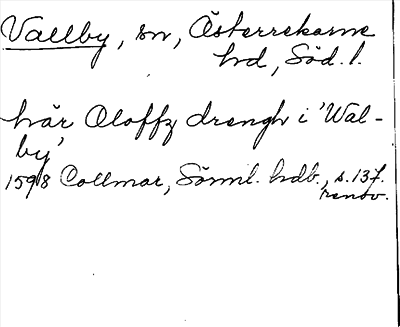 Vallby, sn, Österrekarne
hd, Söd. l.
här Oloffz drengh i 'Wal-
by'
1598 Collmar, Sörml. hdb., s. 137.
renov.